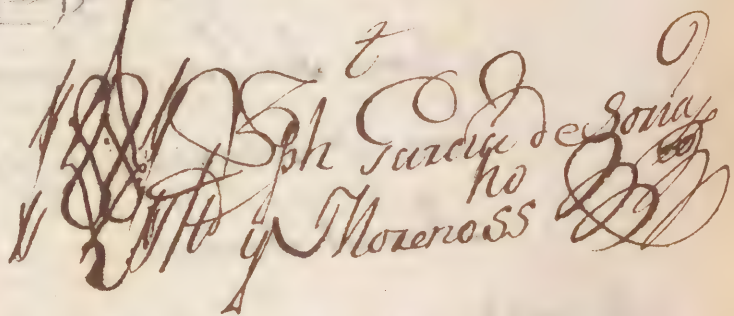 Jph Garcia de Soria
y Moreno ss no